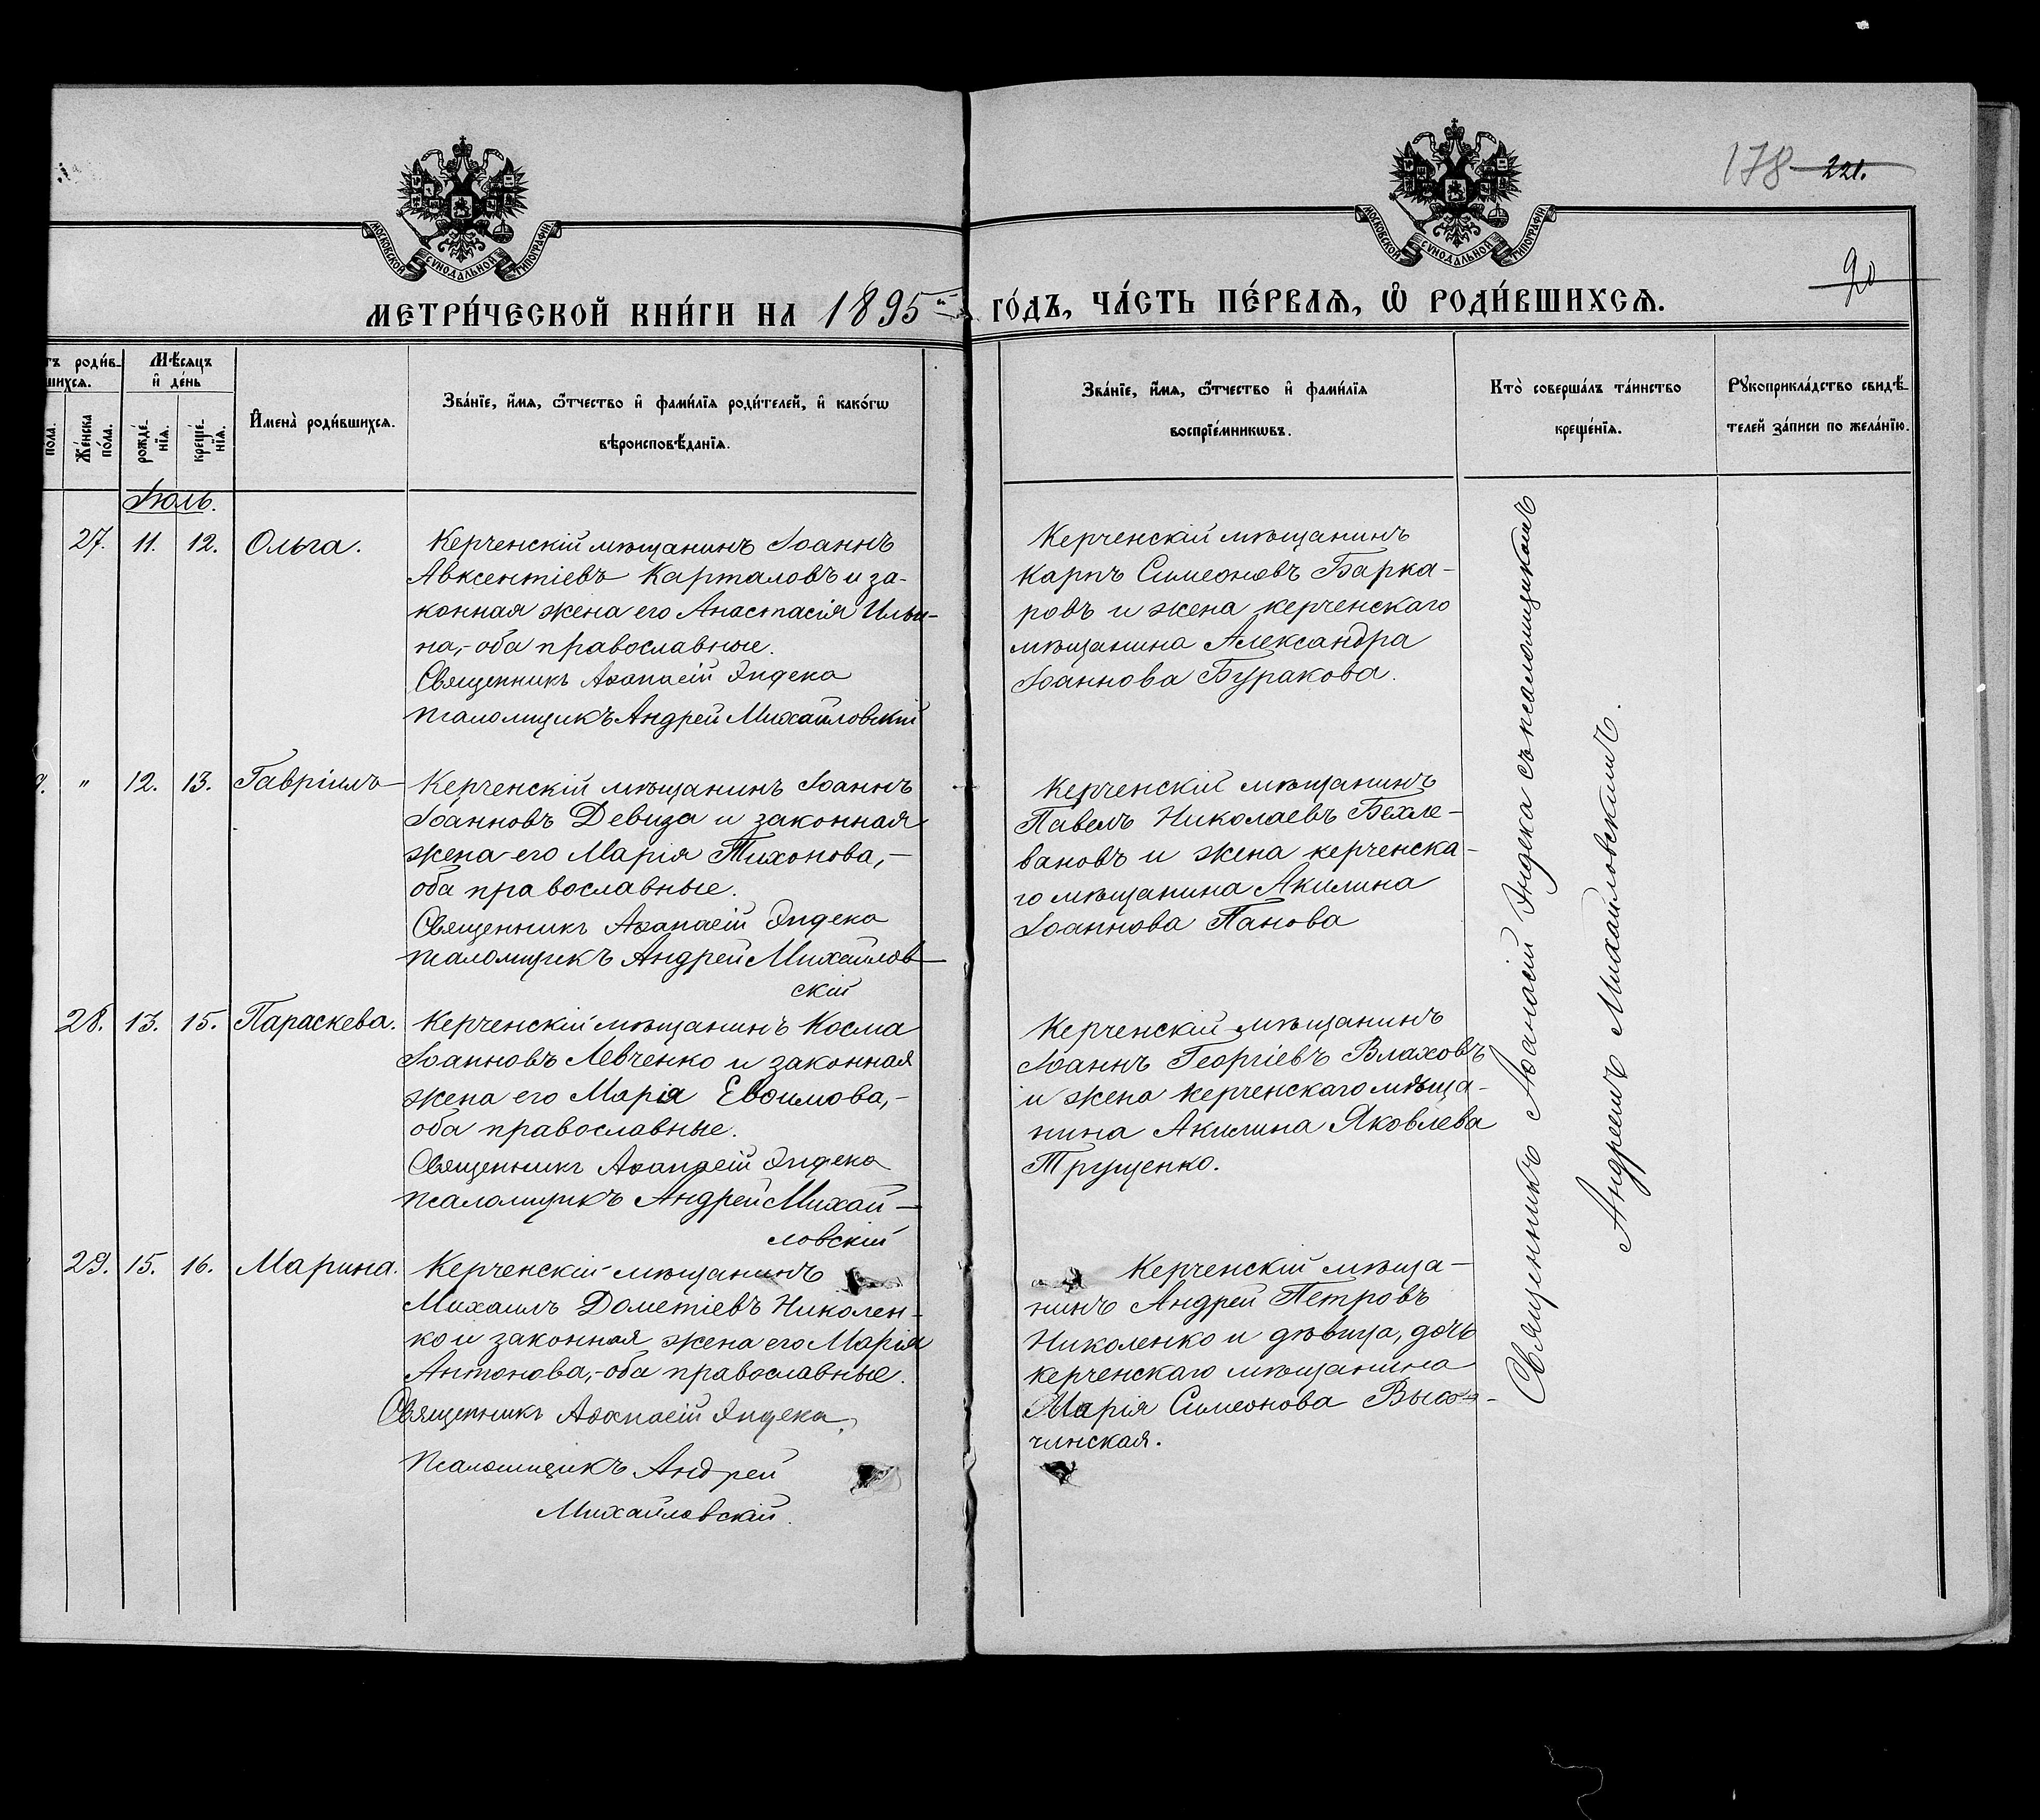 178 221.
МОСКОВСКОЙ СѴНОДАЛЬНОЙ ТИПОГРАФІИ
МОСКОВСКОЙ СѴНОДАЛЬНОЙ ТИПОГРАФІИ
90
МЕТРИ́ЧЕСКОЙ КНИ́ГИ НА 1895й ГО́ДЪ, ЧА́СТЬ ПЕ́РВАѦ, Ѡ҆ РОДИ́ВШИХСѦ.
тъ роди́в-
шихсѧ.
Мѣ́сѧцъ
и҆ де́нь
пола.
Же́нска
по́ла.
рожде́-
нїѧ.
креще́-
нїѧ.
И҆мена̀ роди́вшихсѧ.
Зва́нїе, и҆́мѧ, ѻ҆́тчество и҆ фами́лїѧ роди́телей, и҆ како́гѡ
вѣроисповѣ́данїѧ.
Зва́нїе, и҆́мѧ, ѻ҆́тчество и҆ фами́лїѧ
воспрїе́мникѡвъ.
Кто̀ соверша́лъ та́инство
креще́нїѧ.
Рꙋкоприкла́дство свидѣ́-
телей за́писи по жела́нїю.
Іюль.
27. 11. 12. Ольга.
Керченскій мѣщанинъ Іоаннъ
Авксентіевъ Карталовъ и за-
конная жена его Анастасія Ильи-
на,- оба православные.
Священникъ Аѳанасій Эндека
псаломщикъ Андрей Михайловскій
Керченскій мѣщанинъ
Карпъ Симеоновъ Барка-
ровъ и жена керченскаго
мѣщанина Александра
Іоаннова Буракова.
" 12. 13. Гавріилъ
Керченскій мѣщанинъ Іоаннъ
Іоанновъ Девиза и законная
жена его Марія Тихонова,-
оба православные.
Священникъ Аѳанасій Эндека
псаломщикъ Андрей Михайлов-
скій
Керченскій мѣщанинъ
Павелъ Николаевъ Бехле-
вановъ и жена керченска-
го мѣщанина Акилина
Іоаннова Панова
28. 13. 15. Параскева.
Керченскій мѣщанинъ Косма
Іоанновъ Левченко и законная
жена его Марія Евѳимова,-
оба православные.
Священникъ Аѳанасій Эндека
псаломщикъ Андрей Михай-
ловскій
Керченскій мѣщанинъ
Іоаннъ Георгіевъ Влаховъ
и жена керченскаго мѣща-
нина Акилина Яковлева
Трущенко.
29. 15. 16. Марина.
Керченскій мѣщанинъ
Михаилъ Дометіевъ Николен-
ко и законная жена его Марія
Антонова,- оба православные.
Священникъ Аѳанасій Эндека,
Псаломщикъ Андрей
Михайловскій.
Керченскій мѣща-
нинъ Андрей Петровъ
Николенко и дѣвица, дочь
керченскаго мѣщанина
Марія Симеонова Высо-
чинская.
Священникъ Аѳанасій Эндека съ псаломщикомъ
Андреемъ Михайловскимъ.